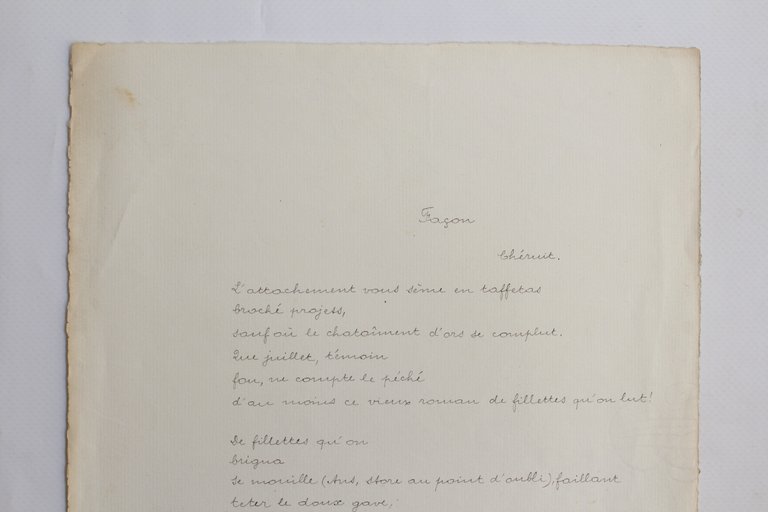 Façon
Chéruit.
L'attachement vous sème en taffetas
broché projets,
sauf où le chatoîment d'ors se complut.
Que juillet, témoin
fou, ne compte le péché
d'au moins ce vieux roman de fillettes qu'on lut!
De fillettes qu'on
brigua
se mouille (Ans, store au point d'oubli), faillant
teter le doux gave,